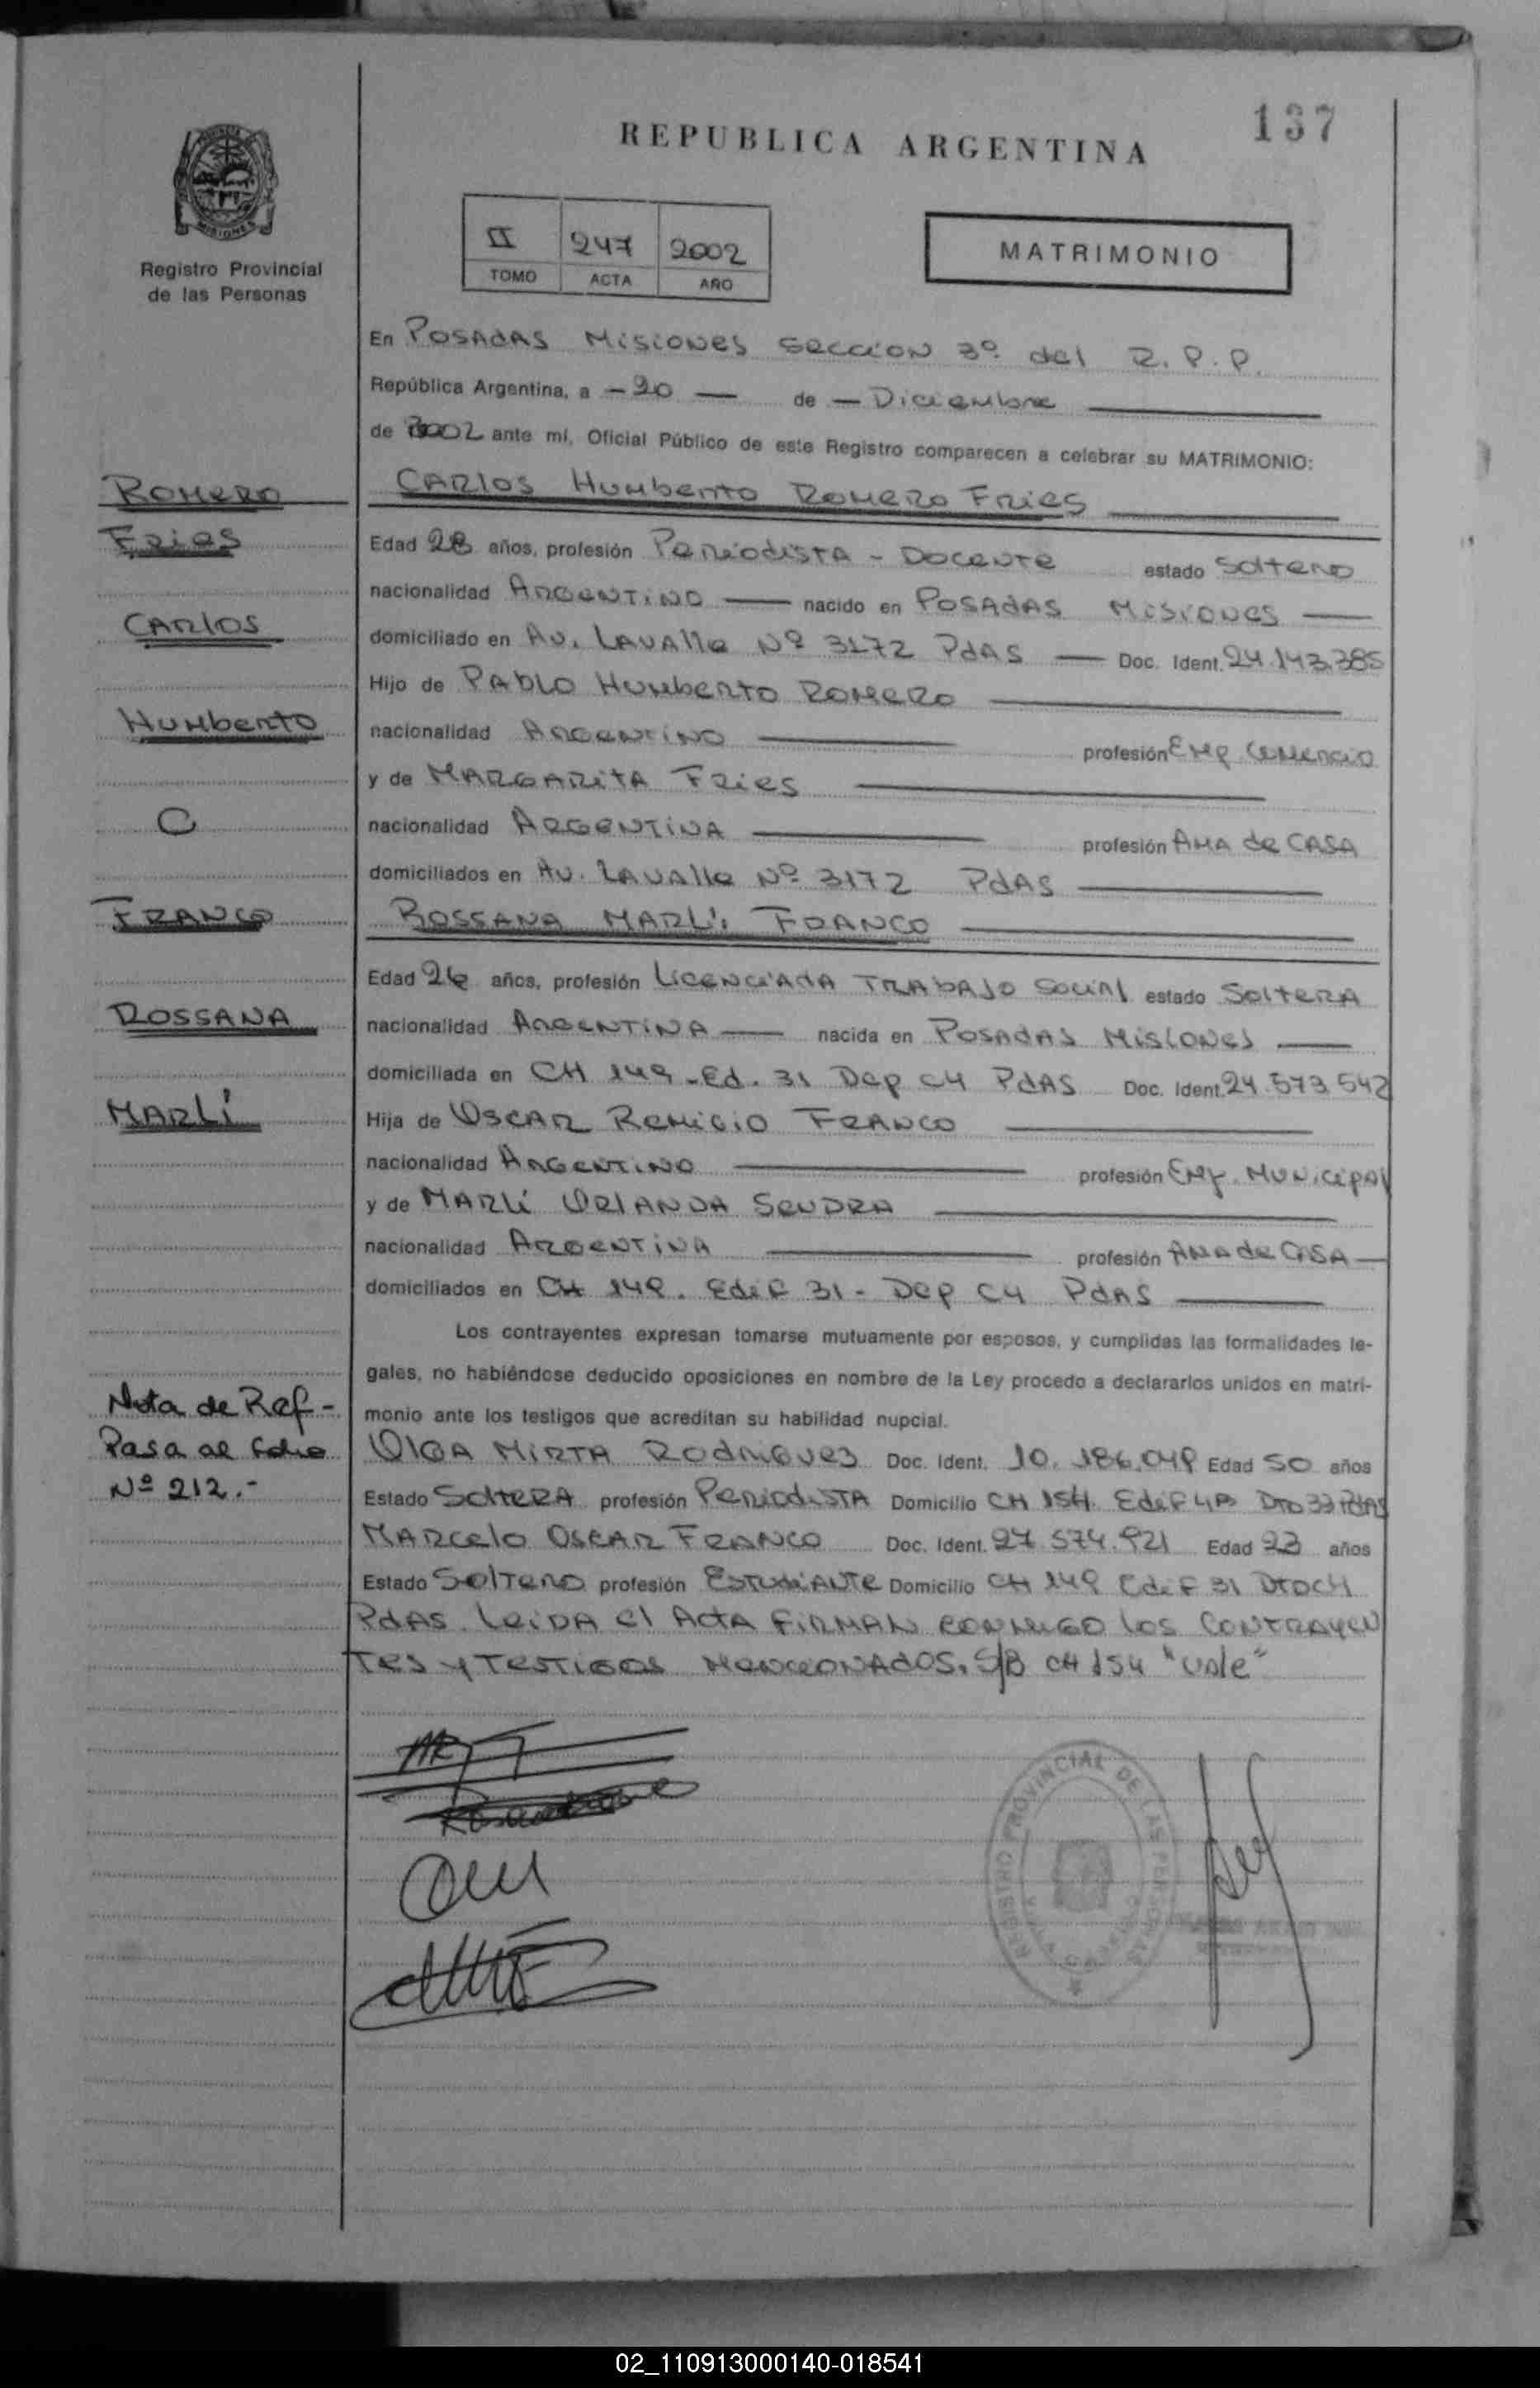 137
REPUBLICA ARGENTINA
MISIONES
Registro Provincial
de las Personas
II 247 2002
TOMO ACTA AÑO
MATRIMONIO
En POSADAS MISIONES SECCION 3º del R.P.P.
República Argentina, a - 20 — de — Diciembre
de 2002 ante mí, Oficial Público de este Registro comparecen a celebrar su MATRIMONIO:
ROMERO
CARLOS HUMBERTO ROMERO FRIES
FRIES
Edad 28 años, profesión PERIODISTA - DOCENTE estado SOLTERO
nacionalidad ARGENTINO — nacido en POSADAS MISIONES —
CARLOS
domiciliado en AV. LAVALLE Nº 3172 PDAS — Doc. Ident. 24.143.385
Hijo de PABLO HUMBERTO ROMERO
HUMBERTO
nacionalidad ARGENTINO profesión EMP COMERCIO
y de MARGARITA FRIES
C
nacionalidad ARGENTINA profesión AMA de CASA
domiciliados en AV. LAVALLE Nº 3172 PDAS
FRANCO
ROSSANA MARLÍ FRANCO
Edad 26 años, profesión LICENCIADA TRABAJO SOCIAL estado SOLTERA
ROSSANA
nacionalidad ARGENTINA — nacida en POSADAS MISIONES —
domiciliada en CH 149 - Ed. 31 Dep C4 PDAS Doc. Ident. 24.573.542
MARLÍ
Hija de OSCAR REMIGIO FRANCO
nacionalidad ARGENTINO profesión EMP. MUNICIPAL
y de MARLÍ ORLANDA SENDRA
nacionalidad ARGENTINA profesión AMA de CASA —
domiciliados en CH 149. Edif 31 - Dep C4 PDAS
Los contrayentes expresan tomarse mutuamente por esposos, y cumplidas las formalidades le-
gales, no habiéndose deducido oposiciones en nombre de la Ley procedo a declararlos unidos en matri-
monio ante los testigos que acreditan su habilidad nupcial.
Nota de Ref -
Pasa al folio
Nº 212.-
OLGA MIRTA RODRIGUES Doc. Ident. 10.186.049 Edad 50 años
Estado SOLTERA profesión PERIODISTA Domicilio CH 154. Edif 4B Dto 33 PDAS
MARCELO OSCAR FRANCO Doc. Ident. 27.574.921 Edad 23 años
Estado SOLTERO profesión ESTUDIANTE Domicilio CH 149 Edif 31 Dto C4
PDAS. LEIDA el ACTA FIRMAN CONMIGO los CONTRAYEN
TES y TESTIGOS MENCIONADOS. S/B CH 154 "Vale"
REGISTRO PROVINCIAL DE LAS PERSONAS
02_110913000140-018541